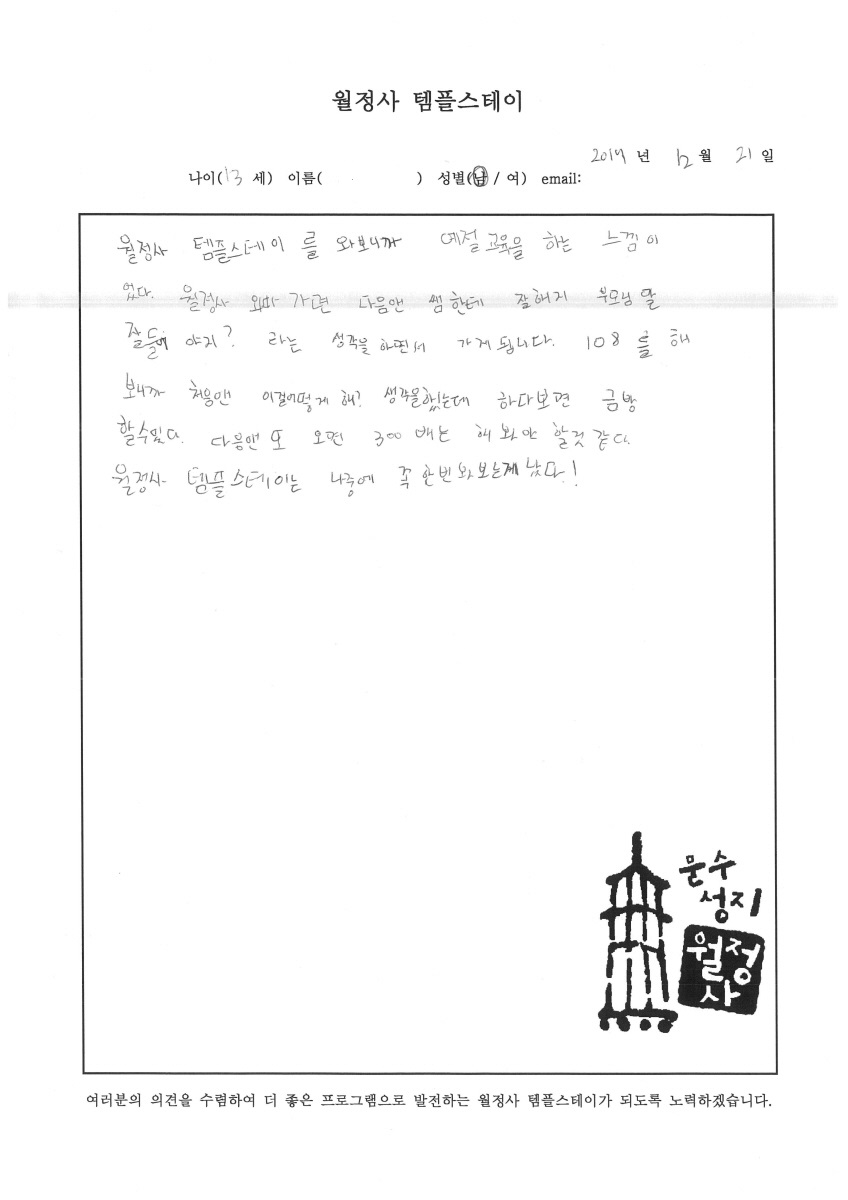 월정사 템플스테이
2014 년 12 월 21 일
나이(13 세) 이름( ) 성별(남 / 여) email:
월정사 템플스테이 를 와보니까 예절교육을 하는 느낌이
었다. 월정사 왔다 가면 다음엔 쌤한테 잘해지 부모님 말
잘들어 야지? 라는 생각을 하면서 가게 됩니다. 108 를 해
보니까 처음엔 이걸어떻게 해? 생각을했는데 하다보면 금방
할수있다. 다음엔 또 오면 300 배는 해 봐야 할것 같다.
월정사 템플스테이는 나중에 꼭 한번와보는게 낫다!
문수
성지
월정
사
여러분의 의견을 수렴하여 더 좋은 프로그램으로 발전하는 월정사 템플스테이가 되도록 노력하겠습니다.